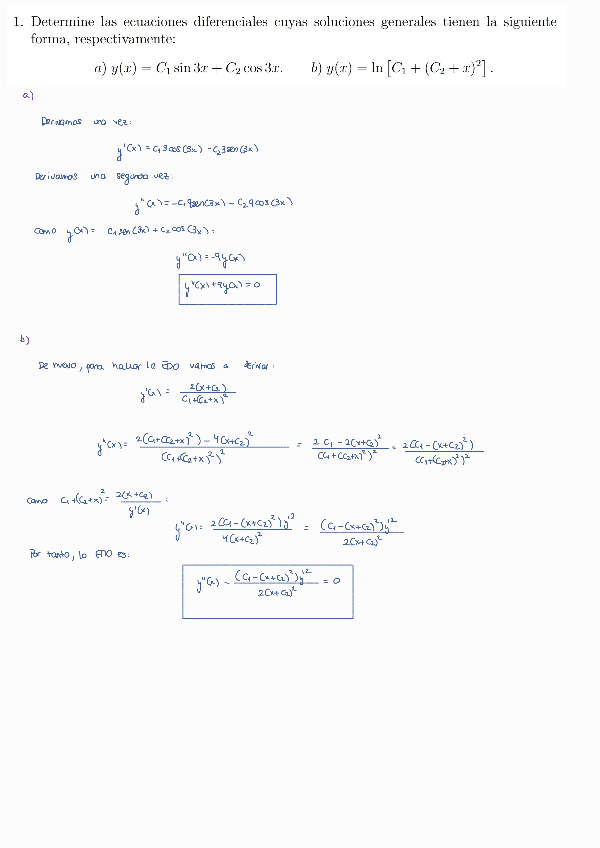 1. Determine las ecuaciones diferenciales cuyas soluciones generales tienen la siguiente
forma, respectivamente:
a) y(x) = C₁ sin 3x + C₂ cos 3x. b) y(x) = ln [C₁ + (C₂ + x)²] .
a)
Derivamos una vez:
y'(x) = C₁3cos(3x) - C₂3sen(3x)
Derivamos una segunda vez:
y''(x) = -C₁9sen(3x) - C₂9cos(3x)
Como y(x) = C₁sen(3x) + C₂cos(3x):
y''(x) = -9y(x)
y''(x) + 9y(x) = 0
b)
De nuevo, para hallar la EDO vamos a derivar:
y'(x) = 2(x+C₂) / C₁+(C₂+x)²
y''(x) = 2(C₁+(C₂+x)²) - 4(x+C₂)² / (C₁+(C₂+x)²)² = 2C₁ - 2(x+C₂)² / (C₁+(C₂+x)²)² = 2(C₁-(x+C₂)²) / (C₁+(C₂+x)²)²
Como C₁+(C₂+x)² = 2(x+C₂) / y'(x) :
y''(x) = 2(C₁-(x+C₂)²)y'² / 4(x+C₂)² = (C₁-(x+C₂)²)y'² / 2(x+C₂)²
Por tanto, la EDO es:
y''(x) - (C₁-(x+C₂)²)y'² / 2(x+C₂)² = 0